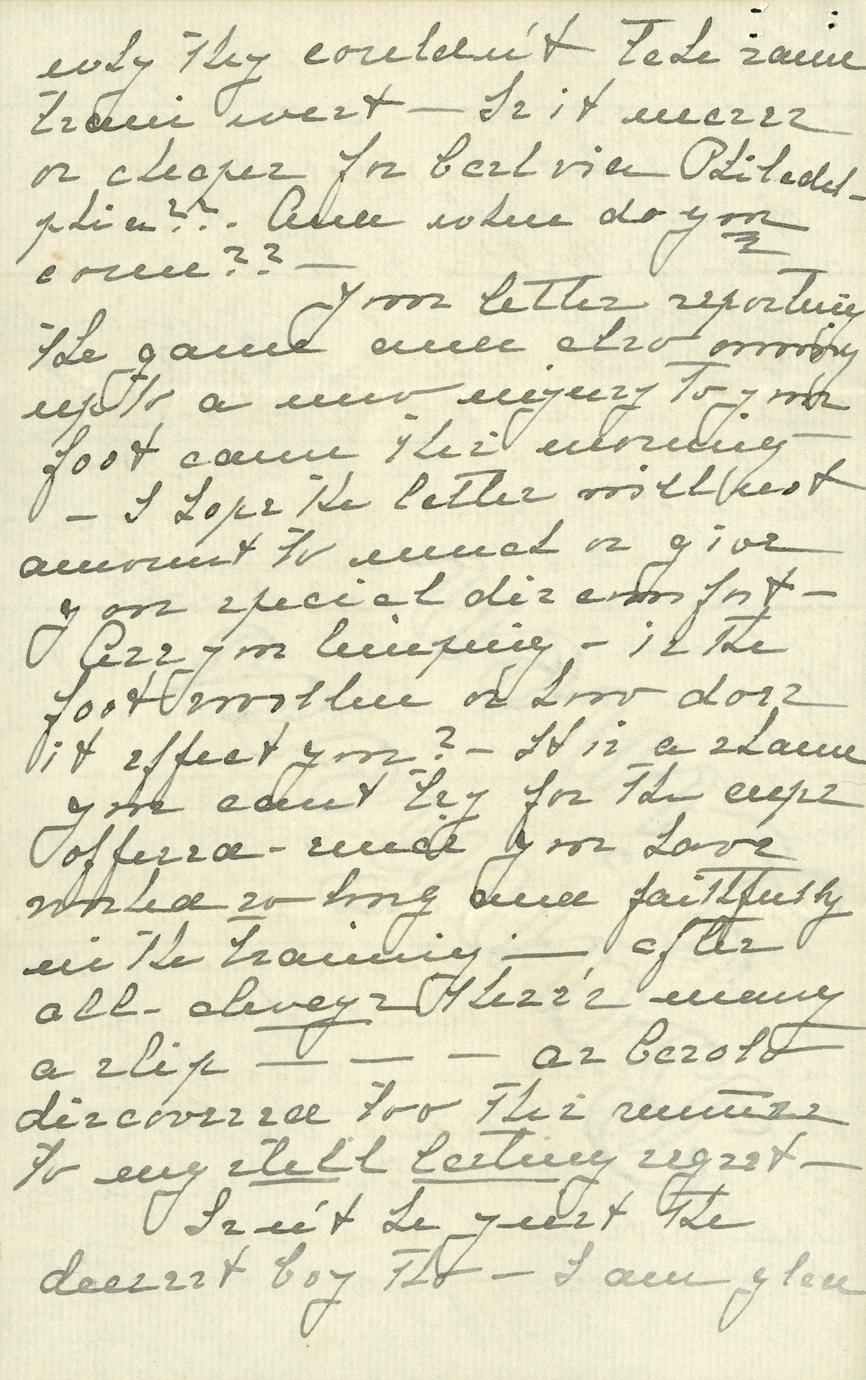 why they couldn't take same
train west — Is it nearer
or cheaper for Carl via Philadel-
phia??. And when do you
come?? —
Your letter reporting
the game and also owning
up to a new injury to your
foot came this morning —
— I hope the latter will not
amount to much or give
you special discomfort —
Are you limping — is the
foot swollen or how does
it affect you? — It is a shame
you can't try for the cups
offered — since you have
worked so long and faithfully
in the training. — after
all — always there's many
a slip — — — as Carol
discovered too this summer
to my still lasting regret —
Isn't he just the
dearest boy tho — I am glad